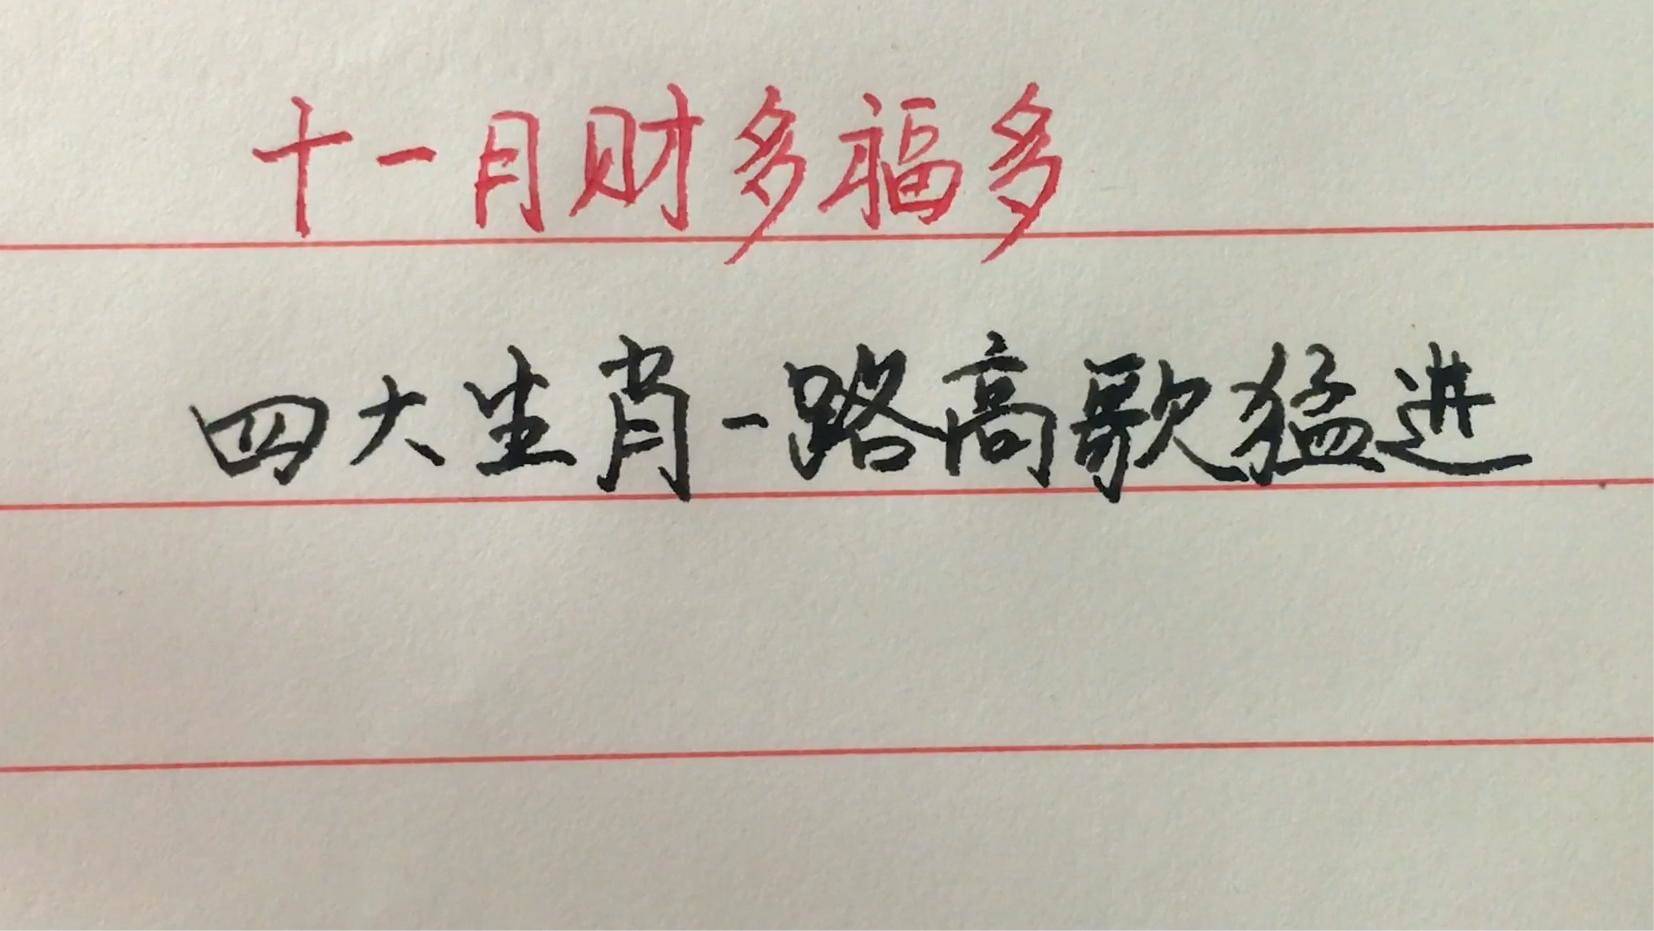 十一月财多福多
四大生肖一路高歌猛进